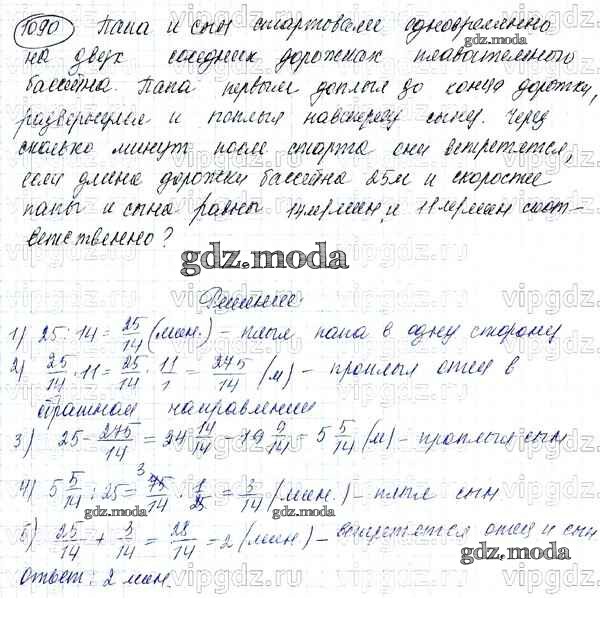 1090 Папа и сын стартовали одновременно
на двух соседних дорожках плавательного
бассейна. Папа первым доплыл до конца дорожки,
развернулся и поплыл навстречу сыну. Через
сколько минут после старта они встретятся,
если длина дорожки бассейна 25м и скорости
папы и сына равны 14м/мин и 11м/мин соот-
ветственно?
gdz.moda
Решение
1) 25 : 14 = 25/14 (мин.) – плыл папа в одну сторону
2) 25/14 · 11 = 25/14 · 11/1 = 275/14 (м) – проплыл отец в
обратном направлении
3) 25 - 275/14 = 24 14/14 - 19 9/14 = 5 5/14 (м) – проплыл сын
gdz.moda
4) 5 5/14 : 25 = 75/14 · 1/25 = 3/14 (мин.) – плыл сын
gdz.moda
5) 25/14 + 3/14 = 28/14 = 2 (мин) – встретятся отец и сын
gdz.moda
Ответ: 2 мин.
vipgdz.ru